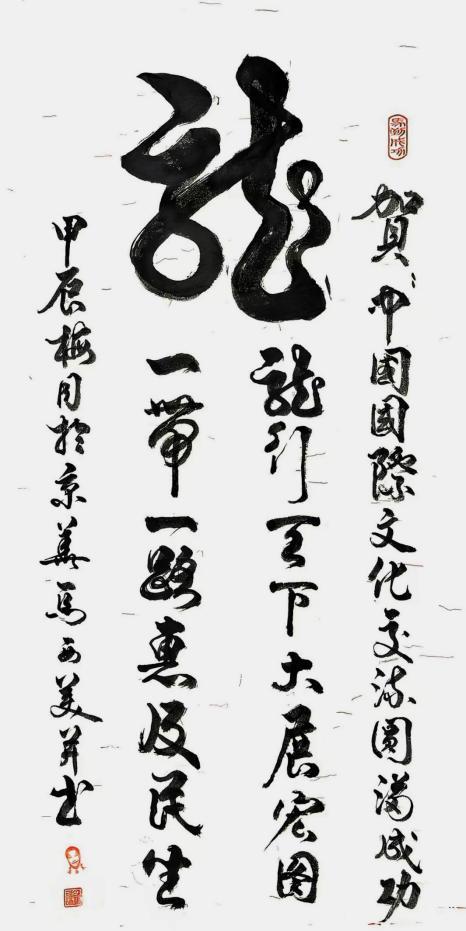 賀中國國際文化交流圓滿成功
龍
龍行天下大展宏图
一帶一路惠及民生
甲辰梅月於京馬西美并书